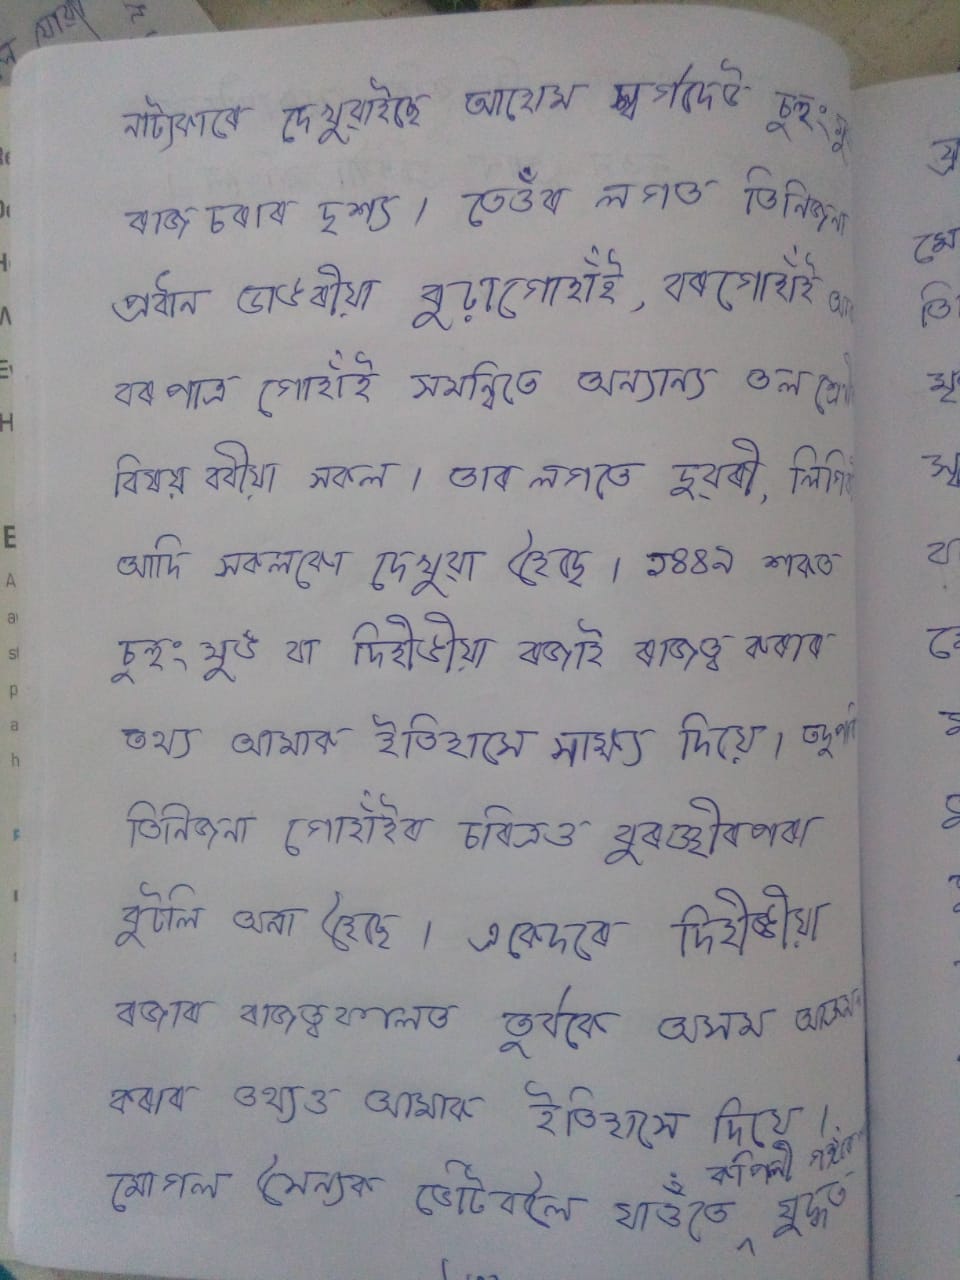 নাট্যকাৰে দেখুৱাইছে আহোম স্বৰ্গদেউ চুহুং
ৰাজ চৰাৰ দৃশ্য। তেওঁৰ লগত তিনিজনা
প্ৰধান ডাঙৰীয়া বুঢ়াগোহাঁই, বৰগোহাঁই
বৰপাত্ৰ গোহাঁই সমন্বিতে অন্যান্য তল
বিষয় ববীয়া সকল। তাৰ লগতে দুৱৰী,
আদি সকলকো দেখুৱা হৈছে। ১৪৪৯ শকত
চুহুং মুঙ বা দিহীঙীয়া ৰজাই ৰাজত্ব কৰাৰ
তথ্য আমাক ইতিহাসে সাক্ষ্য দিয়ে।
তিনিজনা গোহাঁইৰ চৰিত্ৰও বুৰঞ্জীৰপৰা
বুটলি অনা হৈছে। একেদৰে দিহীঙীয়া
ৰজাৰ ৰাজত্বকালত তুৰ্বকে অসম
কৰাৰ তথ্যও আমাক ইতিহাসে দিয়ে।
কপিলী
মোগল সৈন্যক ভেটিবলৈ যাওঁতে যুদ্ধত